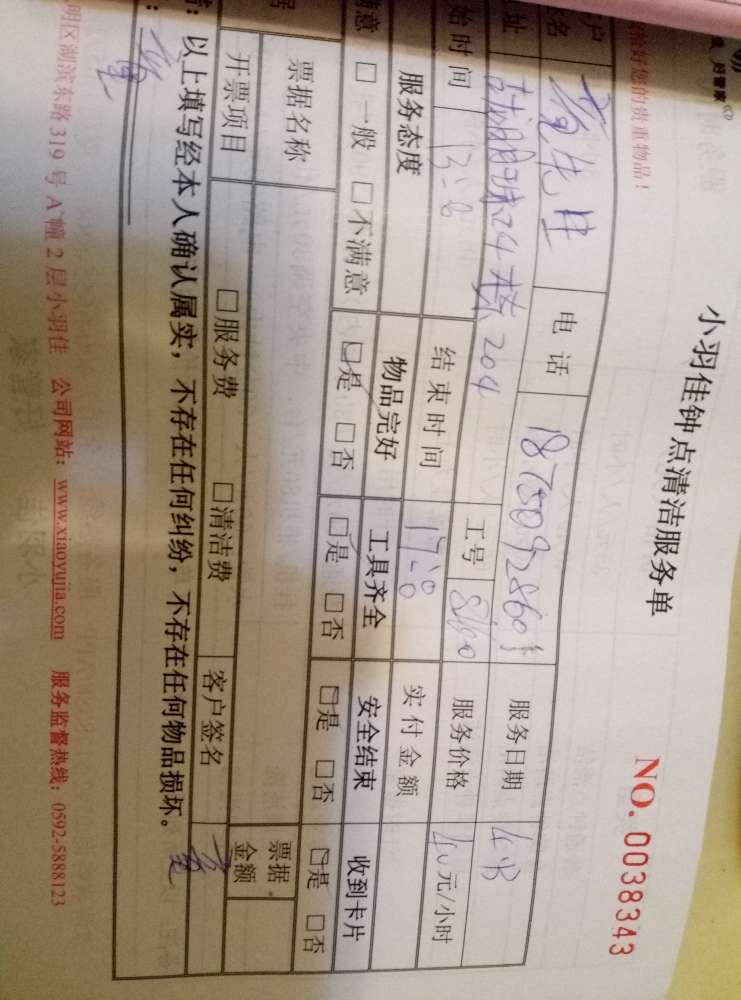 小羽佳钟点清洁服务单
NO. 0038343
您的贵重物品！
户 先生 电话 服务日期 4.3
址 明珠24栋204 工号 8160 服务价格 40元/小时
始时间 13:00 结束时间 17:00 实付金额
服务态度 物品完好 工具齐全 安全结束 收到卡片
意 □ 一般 □ 不满意 □是 □否 □是 □否 □是 □否 □是 □否
票据名称 票据金额
开票项目 □服务费 □清洁费 客户签名
以上填写经本人确认属实，不存在任何纠纷，不存在任何物品损坏。
明区湖滨东路 319 号 A 幢 2 层小羽佳 公司网站：www.xiaoyujia.com 服务监督热线：0592-5888123